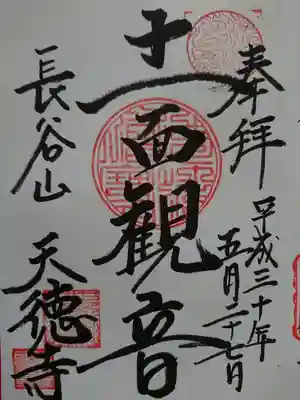 奉拝
平成三十年
五月二十七日
十一面観音
長谷山
天徳寺